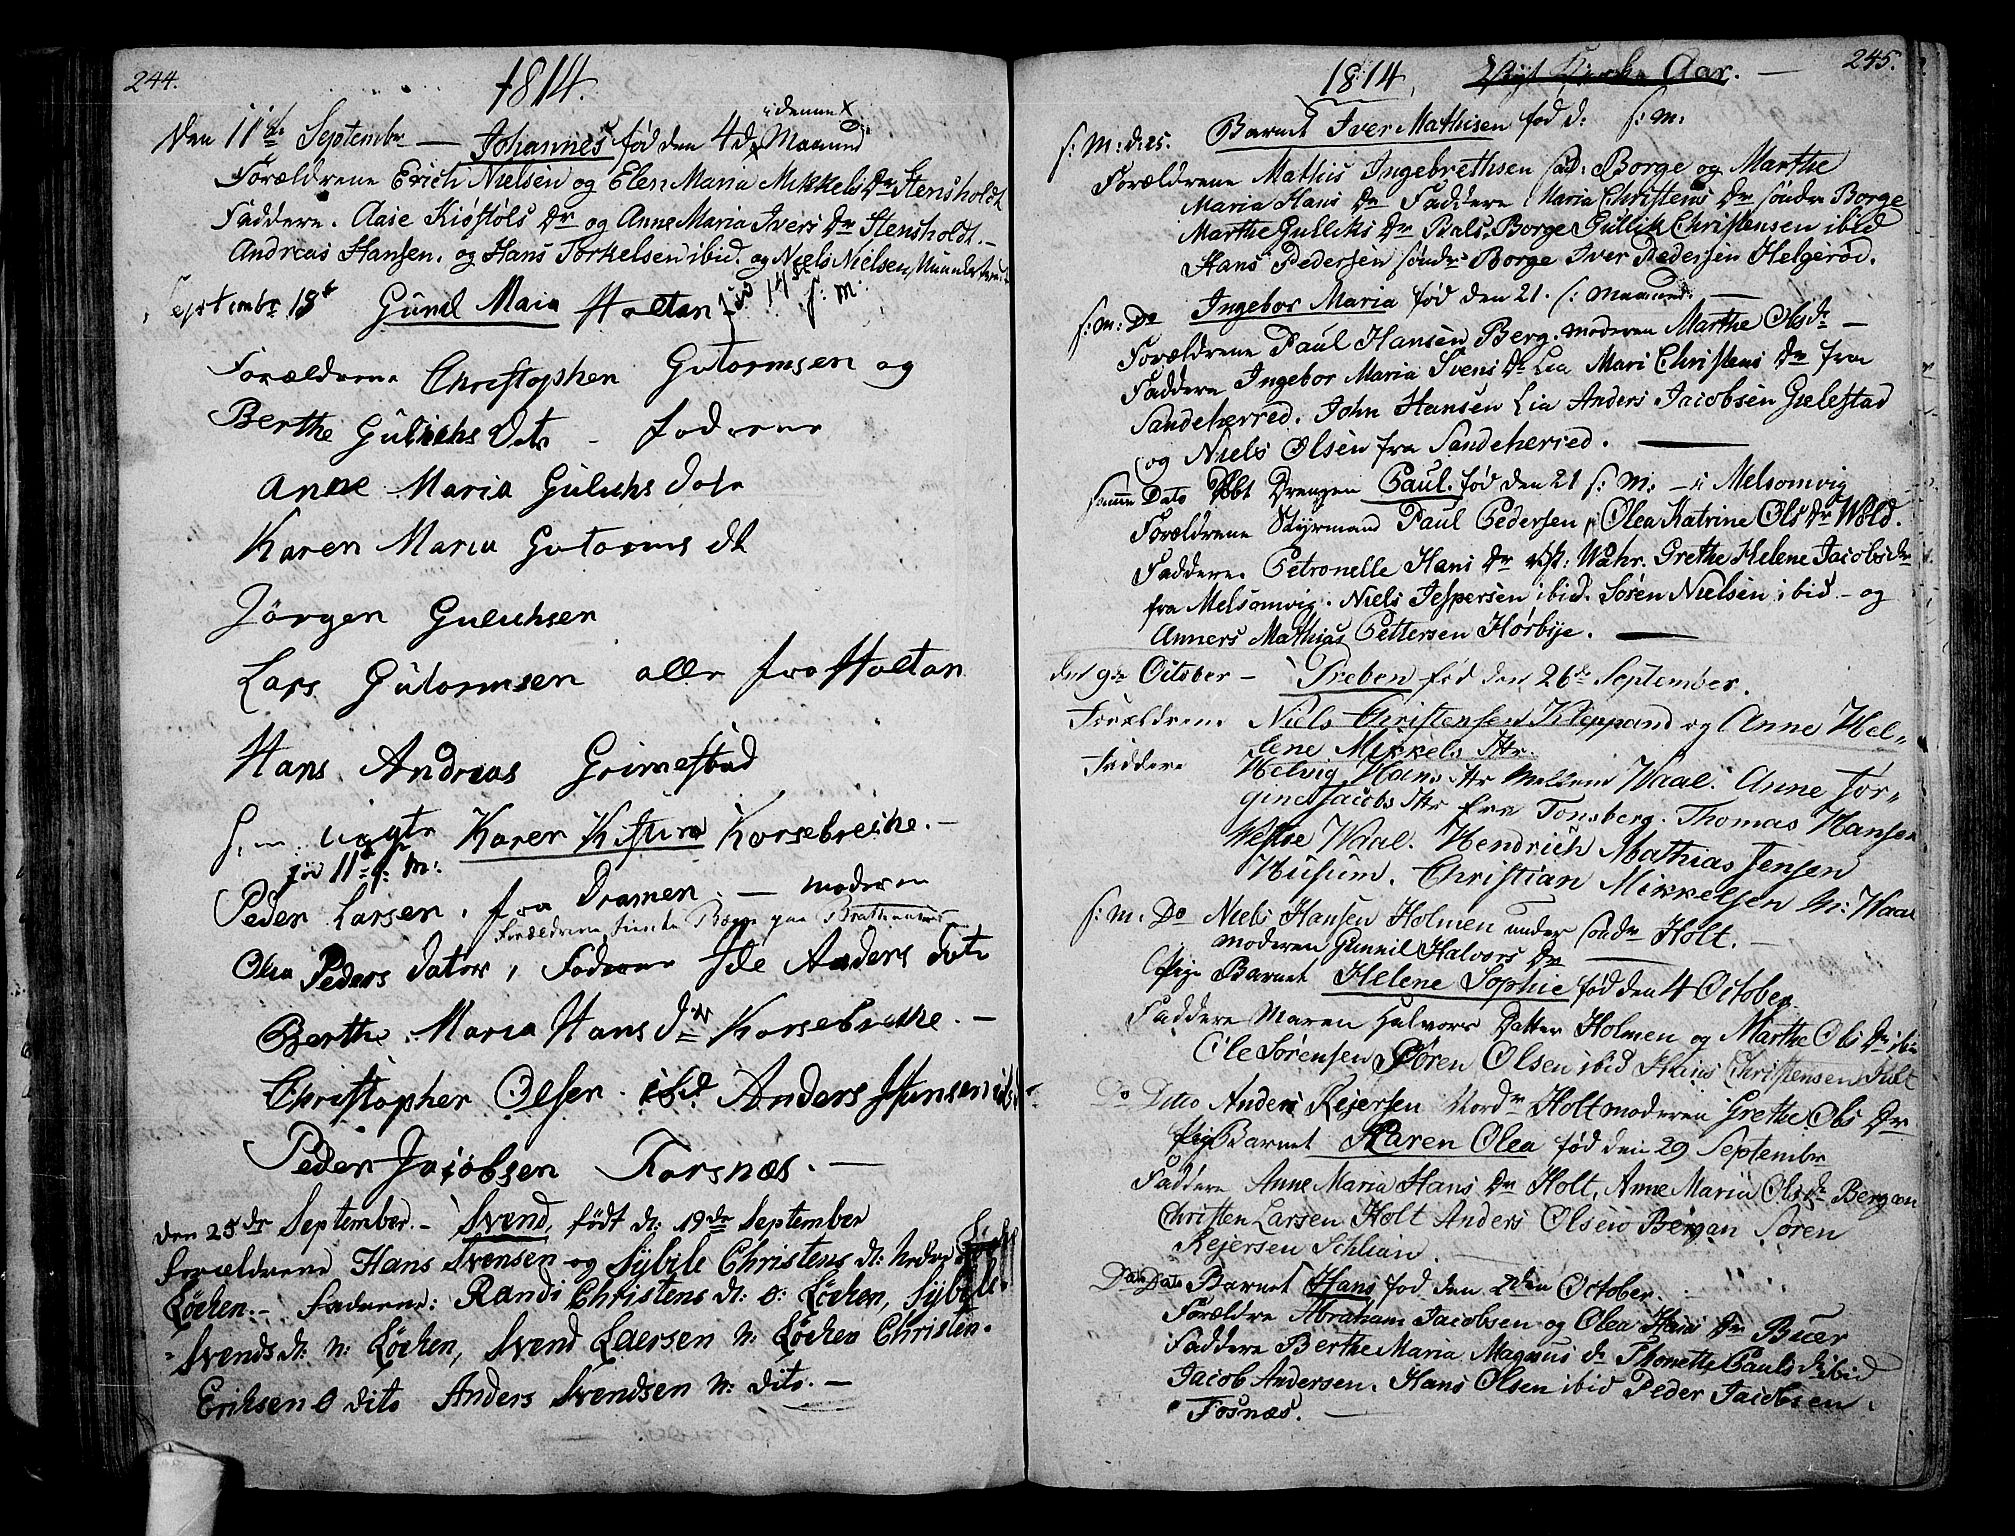 244.
1814.
Den 11te September — Johannes fød den 4de i denne Maaned
Forældrene Erich Nielsen og Elen Maria Mikkels Dr Stensholdt
Faddere. Aase Kiøstøls Dr og Anne Maria Ivers Dr Stensholdt. —
Andreas Hansen. og Hans Torkelsen ibid. og Niels Nielsen,
September 18 Gunil Maria Holtan fød 14 s: M:
Forældrene Christopher Gutormsen og
Berthe Gulichs Datr — fadderne
Anne Maria Gulichs Datr
Karen Maria Gutorms dt
Jörgen Gulichsen
Lars Gutormsen alle fra Holtan
Hans Andreas Grimestad
Karen Kistina Korsebreche. —
fød 11te s: M:
Peder Larsen, fra Dramen. — moderen
Forældrene
Olia Peders dater, Fadderne Ide Anders datr
Berthe. Maria Hans dtr Korsebreche. —
Christopher Olsen. ibd Anders Hansen ibd
Peder Jacobsen Forsnæs. —
den 25de September. — Svend, født d: 19de September
Forældrene Hans Svensen og Sybile Christens dt: Nedre
Löchen. — Fadderne: Randi Christens dt: o: Löchen, Sybile
Svends dt: n: Löchen, Svend Laersen n: Löchen Christen
Eriksen o dito Anders Svendsen n: dito. —
245.
1814. Nyt Kirke Aar. —
s: M: d: 25. Barnet Iver Mathisen fød d: s: M:
Forældrene Mathis Ingebrethsen sød: Borge og Marthe
Maria Hans Dr Faddere Maria Christens Dr söndre Borge
Marthe Gulliks Dr Bals. Borge Gullik Christensen ibid
Hans Pedersen sönd: Borge Iver Pedersen Helgerød.
s: M: Do Ingebor Maria fød den 21. s: Maaned. —
Forældrene Paul Hansen Berg. moderen Marthe Olsdr —
Faddere Ingebor Maria Svens Dr Lia Mari Christens Dr fra
Sandeherred. John Hansen Lia Anders Jacobsen Gielestad
og Niels Olsen fra Sandeherred. —
samme Dato Døbt Drengen Paul. fød den 21 s: M: — i Melsomvig
Forældrene Styrmand Paul Pedersen, Olea Katrine Ols Dr Wold.
Faddere. Petronelle Hans Dr Grethe Helene Jacobsdr
fra Melsomvig. Niels Jespersen ibid. Søren Nielsen ibid — og
Anners Mathias Pettersen Hørbye. —
den 9de October — Preben fød den 26de September.
Forældrene Niels Christensen Kleppand og Anne Hel-
lene Mikkels Dtr.
Faddere Helvig Hans Dtr Mellem Waal. Anne Jör-
gine Jacobs Dtr fra Tonsberg. Thomas Hansen
Westre Waal. Hendrich Mathias Jensen
Husum. Christian Mikkelsen M: Waal
s: M: Do Niels Hansen Holmen under söndr Holt. —
moderen Gunnil Halvors Dr —
Pige Barnet Helene Sophie fød den 4 October.
Faddere Maren Halvors Datter Holmen og Marthe Ols Dr ibid
Ole Sørensen Søren Olsen ibid Hans Christensen Holt
Do Ditto Anders Rejersen Nordre Holt moderen Grethe Ols Dr
Pige Barnet Karen Olea fød den 29 September
Faddere Anne Maria Hans Dr Holt, Anne Maria Olsdr Bergan
Christen Larsen Holt Anders Olsen Bergan Søren
Rejersen Schlian. —
Do Dato Barnet Hans fød den 2den October.
Forældre Abraham Jacobsen og Olea Hans Dr Buer
Faddere Berthe Maria Magnus dr Thonette Pauls dr ibid
Jacob Andersen. Hans Olsen ibid Peder Jacobsen
Fosnæs. —